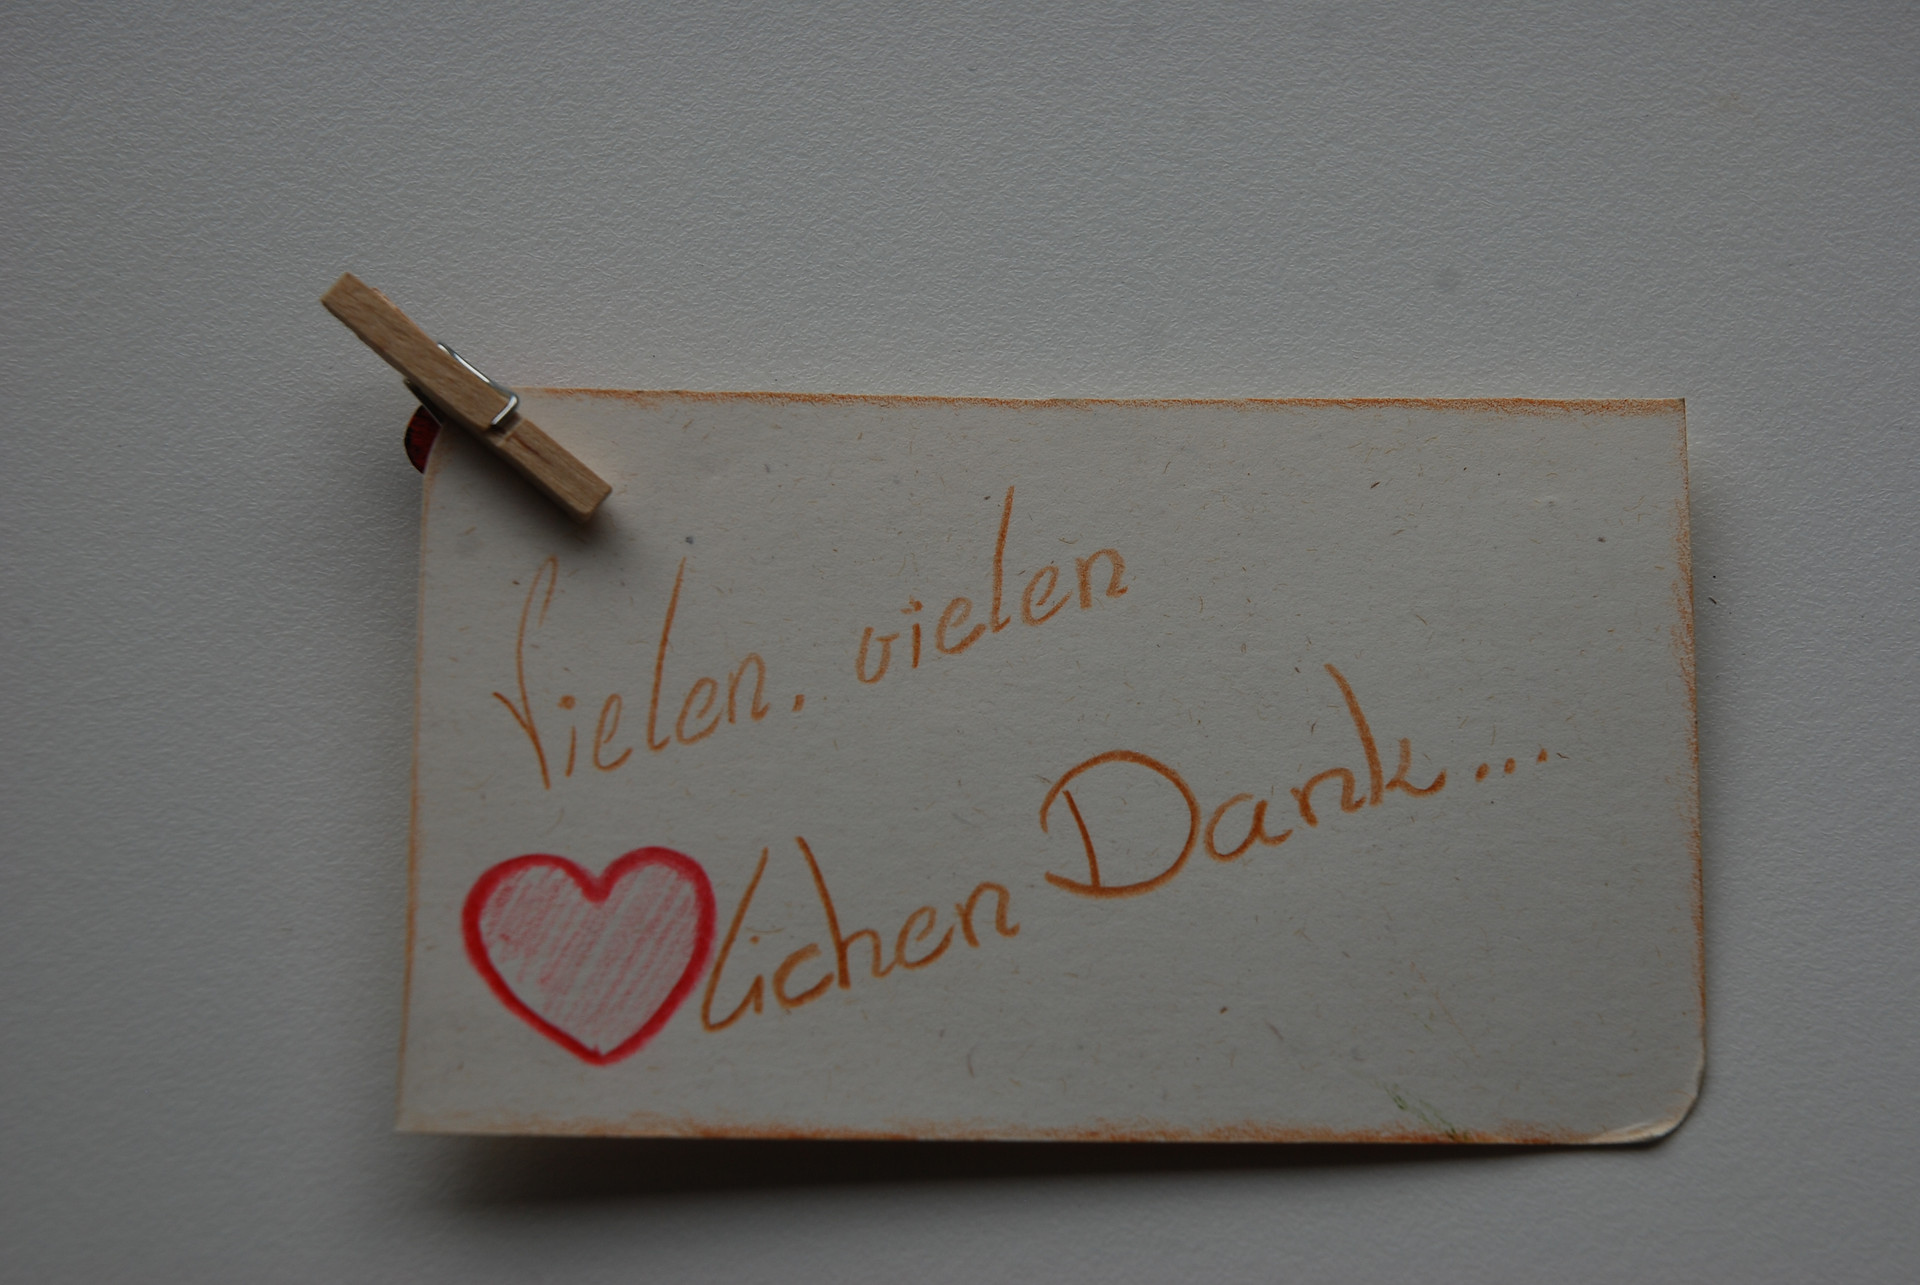 Vielen, vielen
❤lichen Dank...